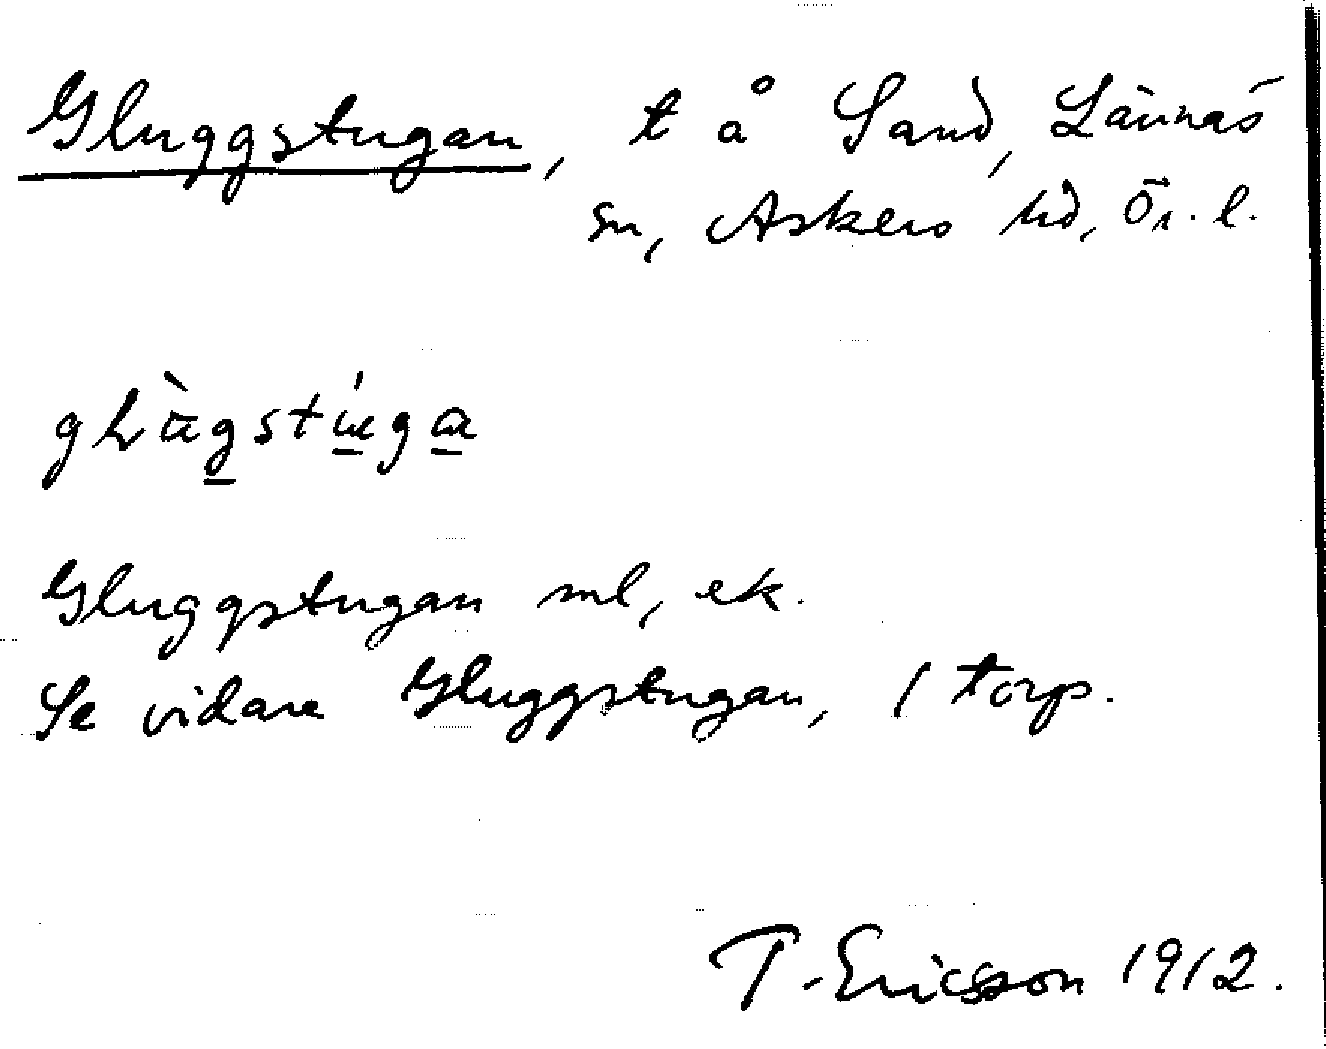 Gluggstugan, t å Sand, Lännäs
sn, Askers hd, Ör. l.
Gluggstugan ml, ek.
Se vidare Gluggstugan, 1 torp.
T. Ericsson 1912.